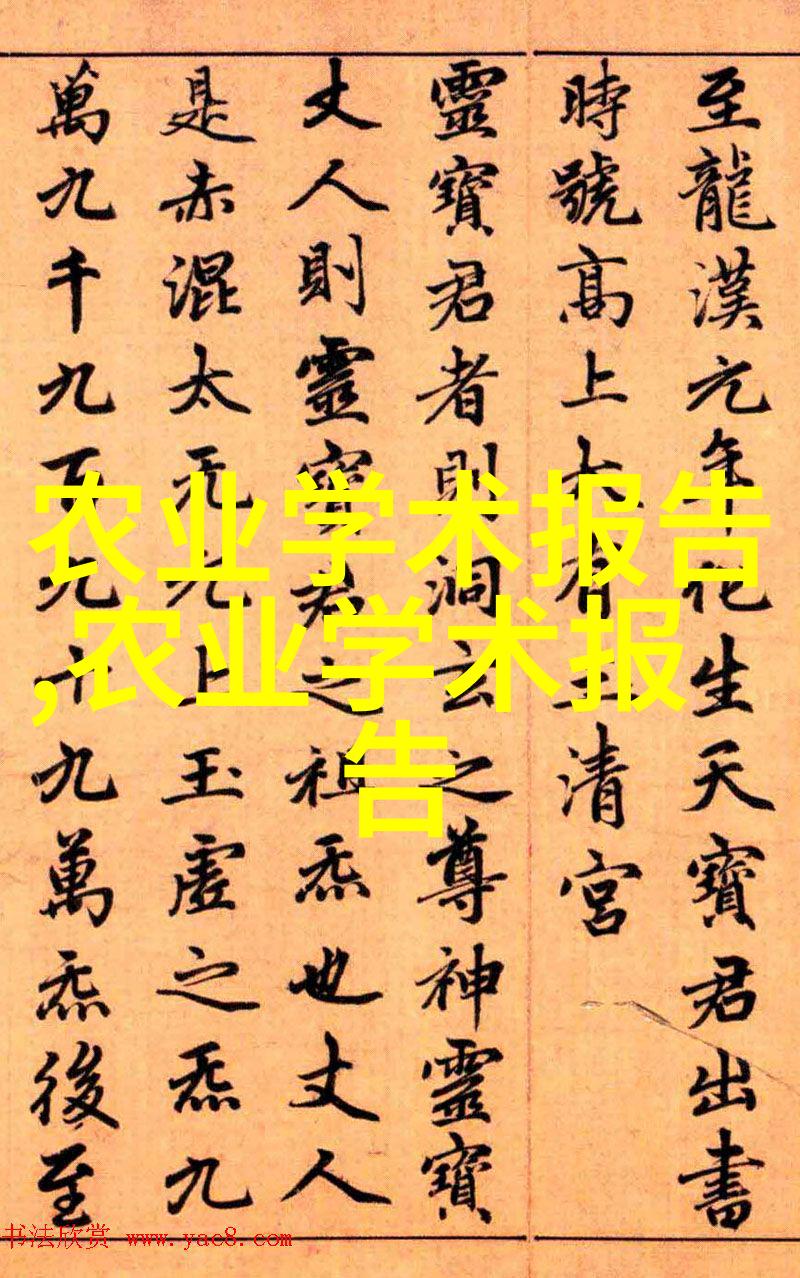 至龍漢元年化生天寶君出書
時號高上大有玉清宮
靈寶君者則洞玄之尊神靈寶
丈人則靈寶君之祖炁也丈人
是赤混太无元上玉虛之炁九
萬九千九百九十九萬炁後至
农业学术报告
,农业学术报
告
书法欣赏 www.yac8.com